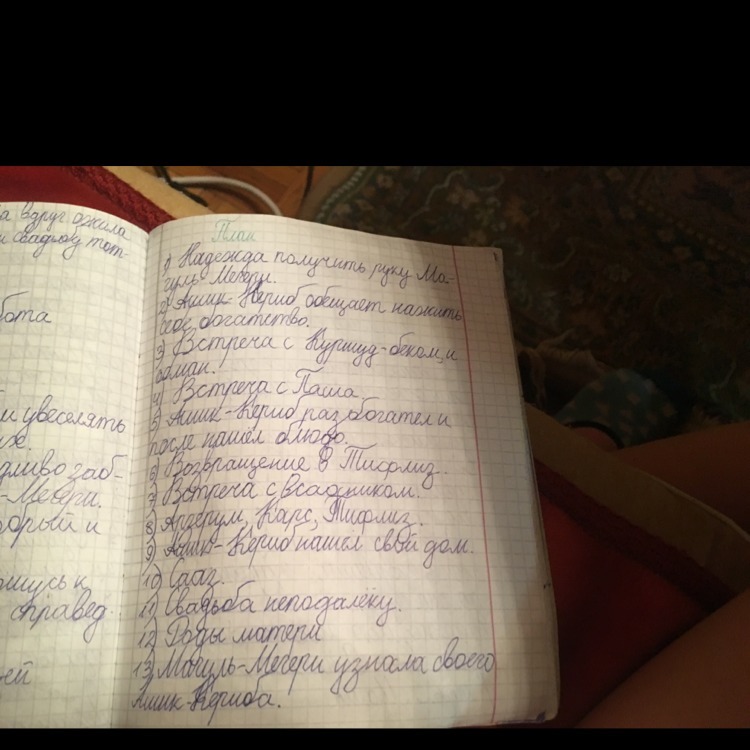 а вдруг ожила
и свадьбу тот-
бота
и увеселять
их.
дливо заб-
-Мегери.
обрый и
ошусь к
справед
ей
План
1) Надежда получить руку Ма-
гуль-Мегери.
2) Ашик-Кериб обещает нажить
себе богатство.
3) Встреча с Куршуд-беком, и
обман.
4) Встреча с Паша.
5) Ашик-Кериб разбогател и
после нашёл блюдо.
6) Возвращение в Тифлиз.
7) Встреча с всадником.
8) Арзерум, Карс, Тифлиз.
9) Ашик-Кериб нашёл свой дом.
10) Сааз.
11) Свадьба неподалёку.
12) Роды матери
13) Магуль-Мегери узнала своего
Ашик-Кериба.